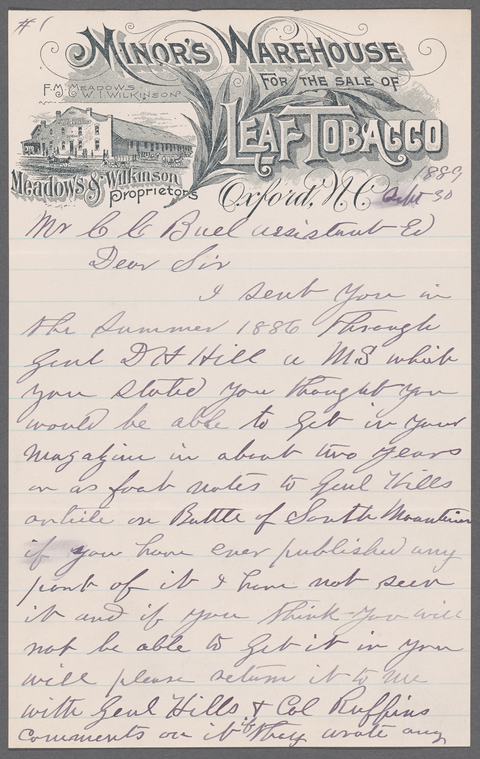 # 1
MINOR'S WAREHOUSE
FOR THE SALE OF
F. M. MEADOWS
W. T. WILKINSON
LEAF TOBACCO
Meadows & Wilkinson
Proprietors
Oxford, N.C. Sept 30 1889
Mr C C Buel assistant Ed
Dear Sir
I sent you in
the summer 1886 through
Genl D H Hill a MS which
you stated you thought you
would be able to get in your
magazine in about two years
or as foot notes to Genl Hills
article on Battle of South Mountain
if you have ever published any
part of it I have not seen
it and if you think you will
not be able to get it in you
will please return it to me
with Genl Hills & Col Ruffins
comments on it if they wrote any